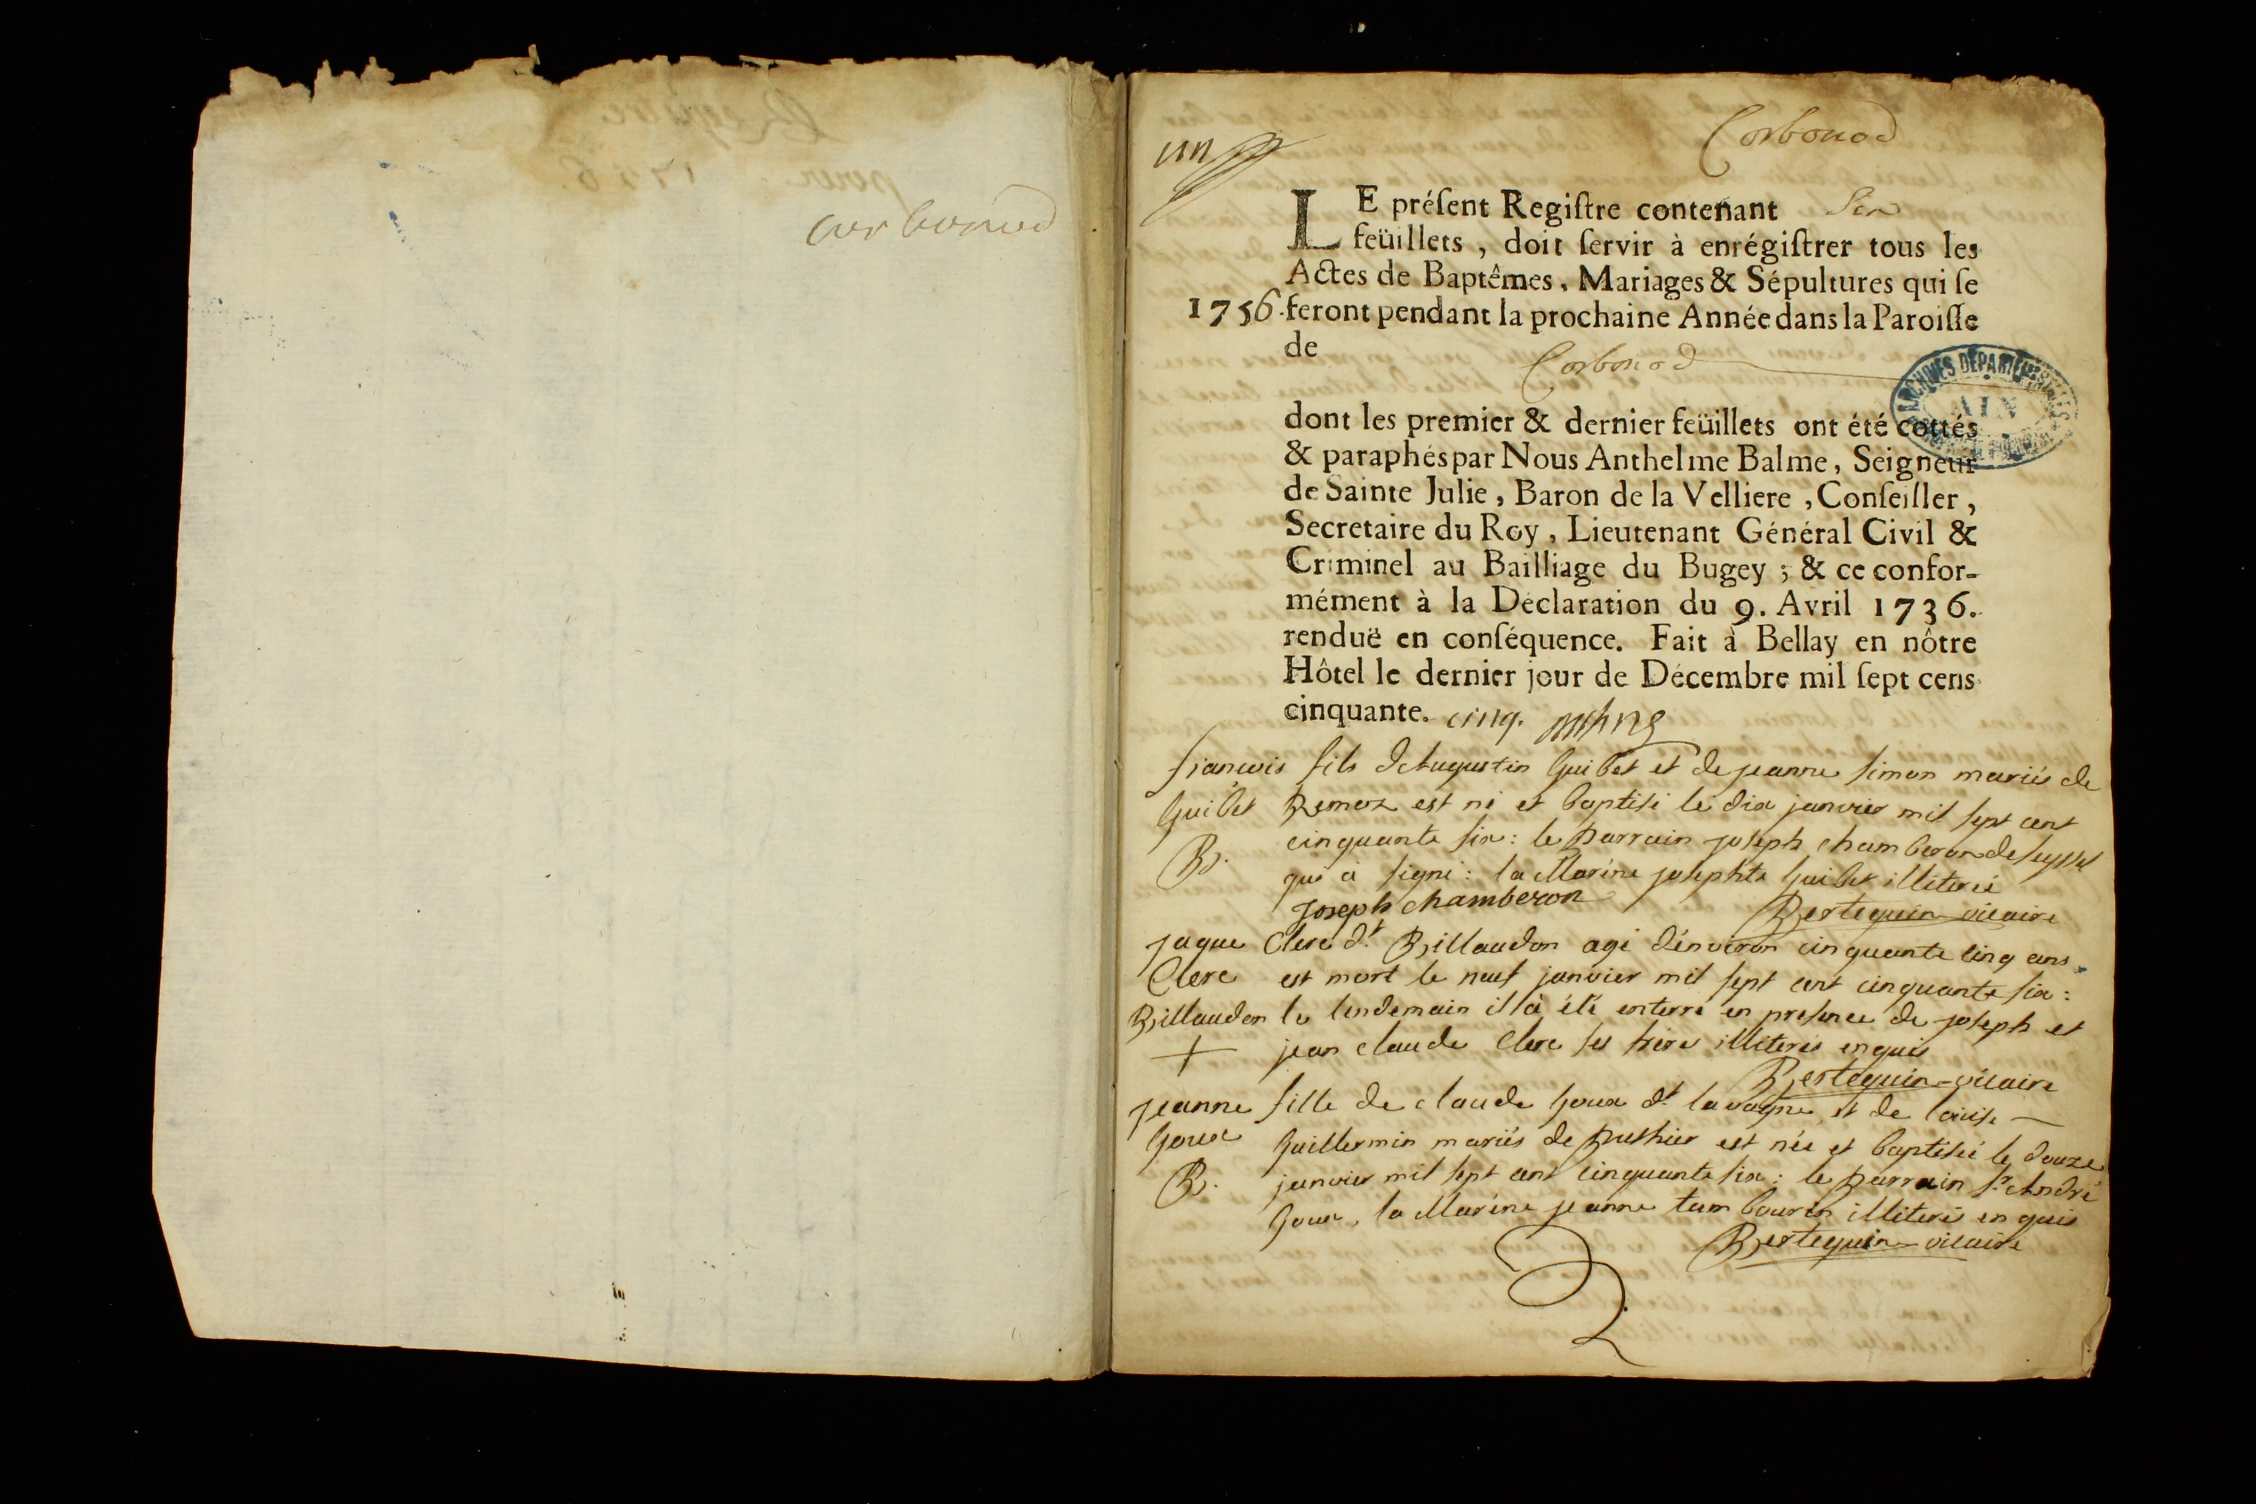 corbonod
un
Corbonod
LE préſent Regiſtre contenant
feüillets, doit ſervir à enrégiſtrer tous les
Actes de Baptêmes, Mariages & Sépultures qui ſe
1756. feront pendant la prochaine Année dans la Paroiſſe
de
Corbonod
ARCHIVES DÉPARTEMENTALES
AIN
dont les premier & dernier feüillets ont été cottés
& paraphés par Nous Anthelme Balme, Seigneur
de Sainte Julie, Baron de la Velliere, Conſeiller,
Secretaire du Roy, Lieutenant Général Civil &
Criminel au Bailliage du Bugey; & ce confor-
mément à la Déclaration du 9. Avril 1736.
renduë en conſéquence. Fait à Bellay en nôtre
Hôtel le dernier jour de Décembre mil ſept cens
cinquante. cinq.
francois fils d'Augustin Guibet et de jeanne simon mariés de
Guibet Remoz est né et baptisé le dix janvier mil sept cent
B. cinquante six: le parrain joseph chamberon de seyssel
qui a signé: la Marine josephte Guibet illiteré
joseph chamberon Bertequin vicaire
jaque Clerc dt Billaudon agé d'environ cinquante cinq ans
Clerc est mort le neuf janvier mil sept cent cinquante six:
Billaudon le lendemain il à été enterré en presence de joseph et
+ jean claude Clerc ses frere illiterés enquis
Bertequin vicaire
jeanne fille de claude Goux dt lavogne et de louise
Goux Guillermin mariés de puthier est née et baptisée le douze
B. janvier mil sept cent cinquante six: le parrain sr André
Goux, la Marine jeanne tambourin illiterés enquis
Bertequin vicaire